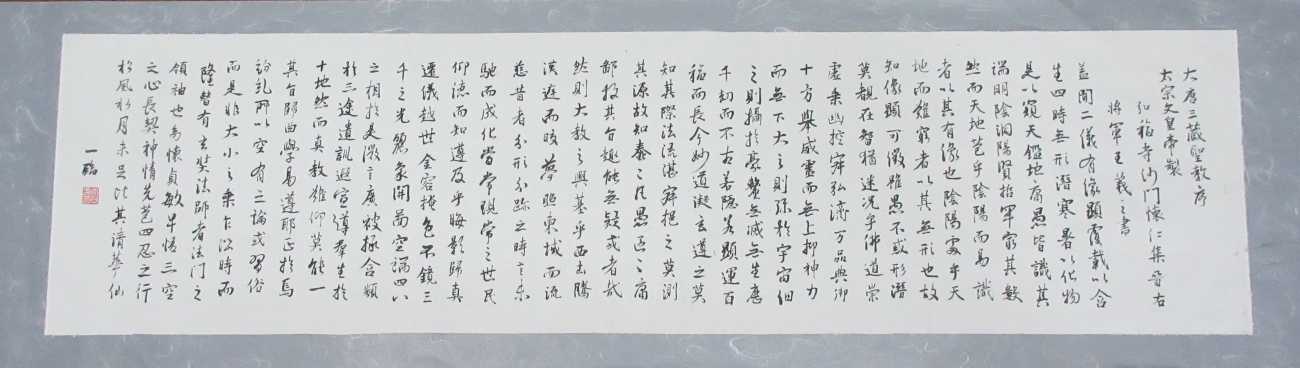 大唐三藏聖教序
太宗文皇帝製
弘福寺沙門懷仁集晉右
將軍王羲之書
蓋聞二儀有像顯覆載以含
生四時無形潛寒暑以化物
是以窺天鑑地庸愚皆識其
端明陰洞陽賢哲罕窮其數
然而天地苞乎陰陽而易識
者以其有像也陰陽處乎天
地而難窮者以其無形也故
知像顯可徵雖愚不惑形潛
莫覩在智猶迷況乎佛道崇
虛乘幽控寂弘濟万品典御
十方舉威靈而無上抑神力
而無下大之則彌於宇宙細
之則攝於豪釐無滅無生歷
千劫而不古若隱若顯運百
福而長今妙道凝玄遵之莫
知其際法流湛寂挹之莫測
其源故知蠢々凡愚區々庸
鄙投其旨趣能無疑惑者哉
然則大教之興基乎西土騰
漢庭而皎夢照東域而流
慈昔者分形分跡之時言未
馳而成化當常現常之世民
仰德而知遵及乎晦影歸真
遷儀越世金容掩色不鏡三
千之光麗象開圖空端四八
之相於是微言廣被拯含類
於三途遺訓遐宣導群生於
十地然而真教難仰莫能一
其旨歸曲學易遵耶正於焉
紛糺所以空有之論或習俗
而是非大小之乘乍沿時而
隆替有玄奘法師者法門之
領袖也幼懷貞敏早悟三空
之心長契神情先苞四忍之行
松風水月未足比其清華仙
一